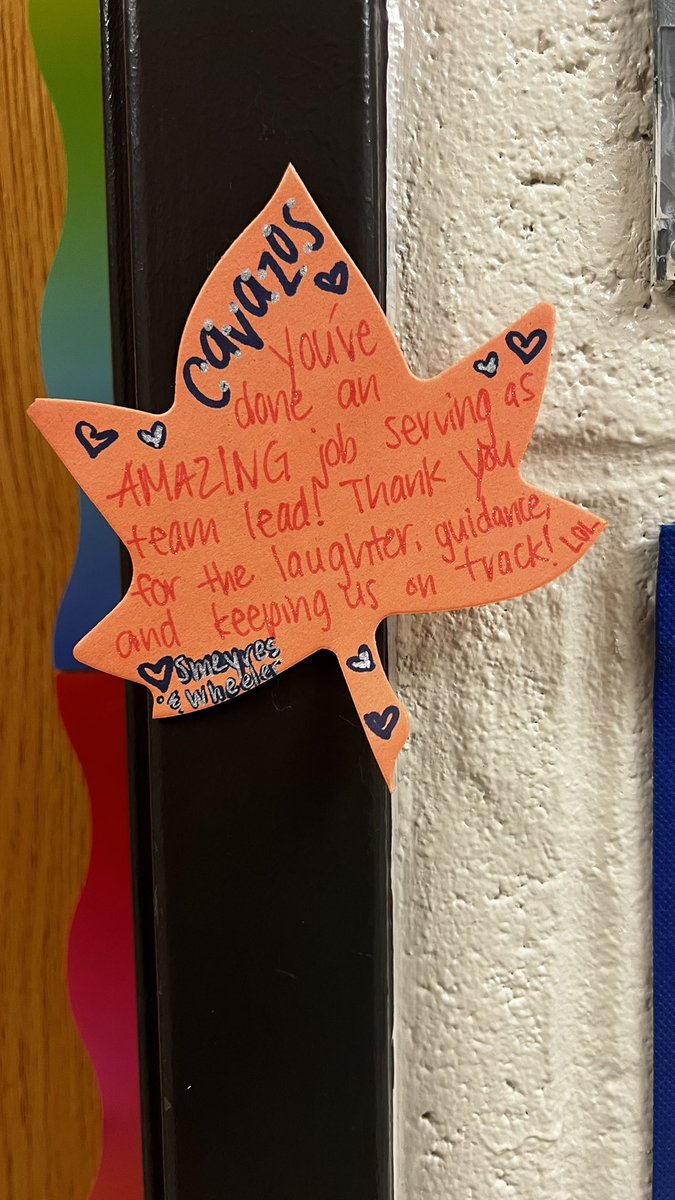 Cavazos
you've
done an
AMAZING job serving as
team lead! Thank you
for the laughter, guidance,
and keeping us on track! LOL
Smeyres
& Wheeler